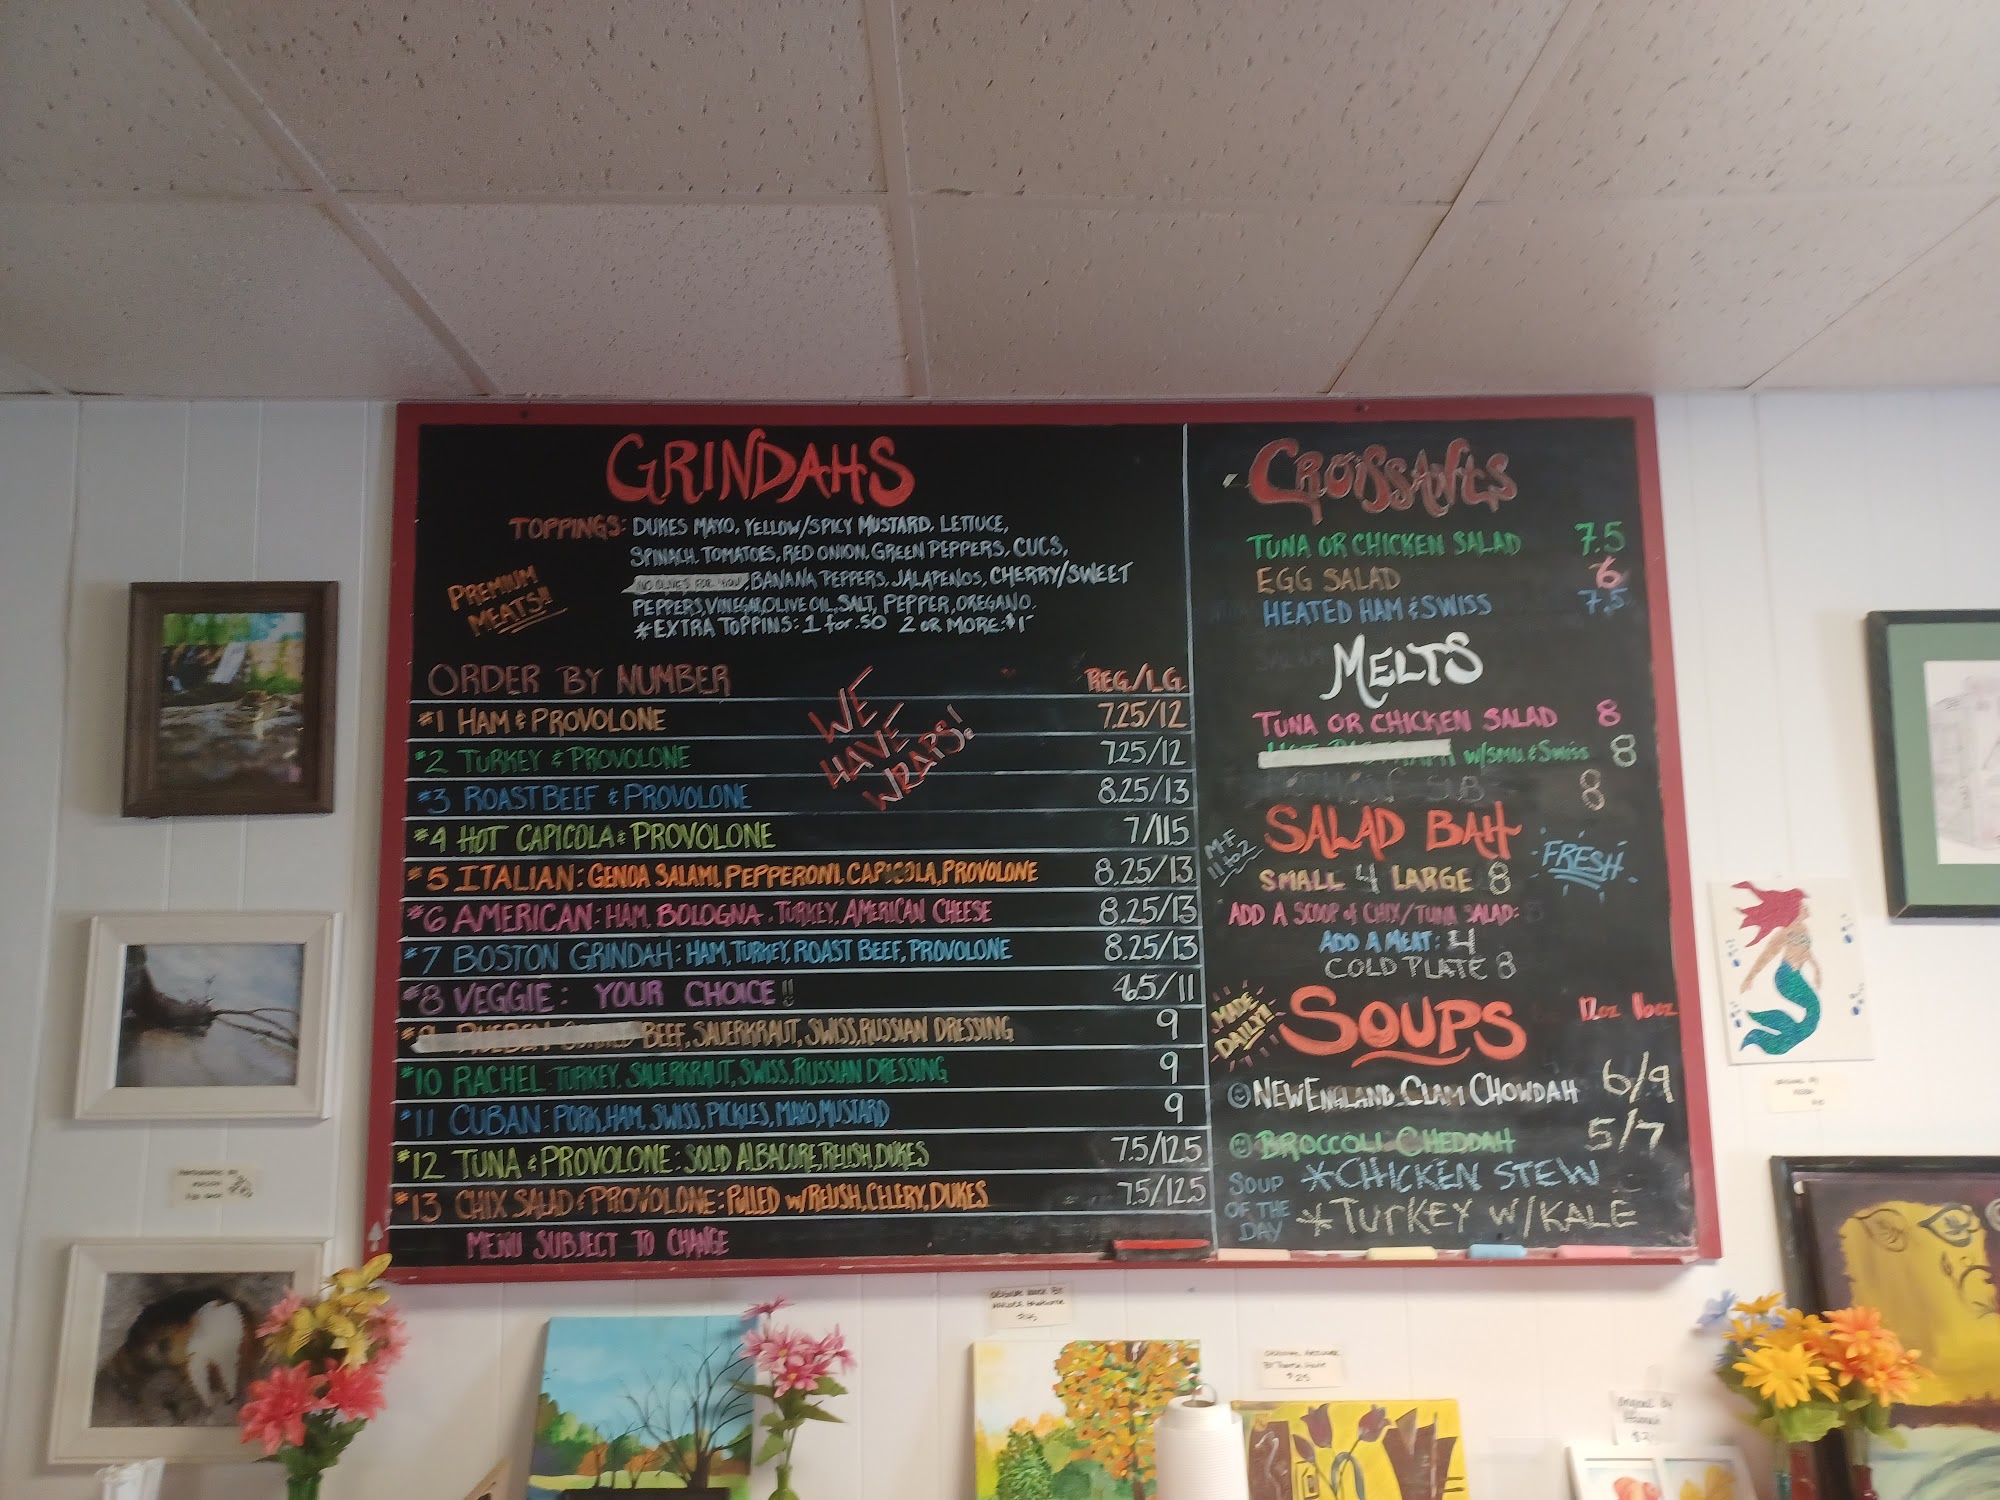 GRINDAHS
TOPPINGS: DUKES MAYO, YELLOW/SPICY MUSTARD, LETTUCE,
SPINACH, TOMATOES, RED ONION, GREEN PEPPERS, CUCS,
NO OLIVES FOR YOU, BANANA PEPPERS, JALAPENOS, CHERRY/SWEET
PEPPERS, VINEGAR, OLIVE OIL, SALT, PEPPER, OREGANO.
*EXTRA TOPPINS: 1 for .50 2 OR MORE: $1
PREMIUM
MEATS!!
ORDER BY NUMBER REG./LG.
WE
HAVE
WRAPS!
#1 HAM & PROVOLONE 7.25/12
#2 TURKEY & PROVOLONE 7.25/12
#3 ROAST BEEF & PROVOLONE 8.25/13
#4 HOT CAPICOLA & PROVOLONE 7/11.5
#5 ITALIAN: GENOA SALAMI, PEPPERONI, CAPICOLA, PROVOLONE 8.25/13
#6 AMERICAN: HAM, BOLOGNA, TURKEY, AMERICAN CHEESE 8.25/13
#7 BOSTON GRINDAH: HAM, TURKEY, ROAST BEEF, PROVOLONE 8.25/13
#8 VEGGIE: YOUR CHOICE!! 6.5/11
BEEF, SAUERKRAUT, SWISS, RUSSIAN DRESSING 9
#10 RACHEL: TURKEY, SAUERKRAUT, SWISS, RUSSIAN DRESSING 9
#11 CUBAN: PORK, HAM, SWISS, PICKLES, MAYO, MUSTARD 9
#12 TUNA & PROVOLONE: SOLID ALBACORE, RELISH, DUKES 7.5/12.5
#13 CHIX SALAD & PROVOLONE: PULLED W/RELISH, CELERY, DUKES 7.5/12.5
MENU SUBJECT TO CHANGE
CROISSANTS
TUNA OR CHICKEN SALAD 7.5
EGG SALAD 6
HEATED HAM & SWISS 7.5
MELTS
TUNA OR CHICKEN SALAD 8
W/SMU. & SWISS 8
8
M-F
11 to 2
SALAD BAH
FRESH
SMALL 4 LARGE 8
ADD A SCOOP of CHIX/TUNA SALAD:
ADD A MEAT: 4
COLD PLATE 8
MADE
DAILY!
SOUPS 12oz 16oz
NEW ENGLAND CLAM CHOWDAH 6/9
BROCCOLI CHEDDAH 5/7
SOUP
OF THE
DAY
*CHICKEN STEW
*TURKEY W/KALE
$25